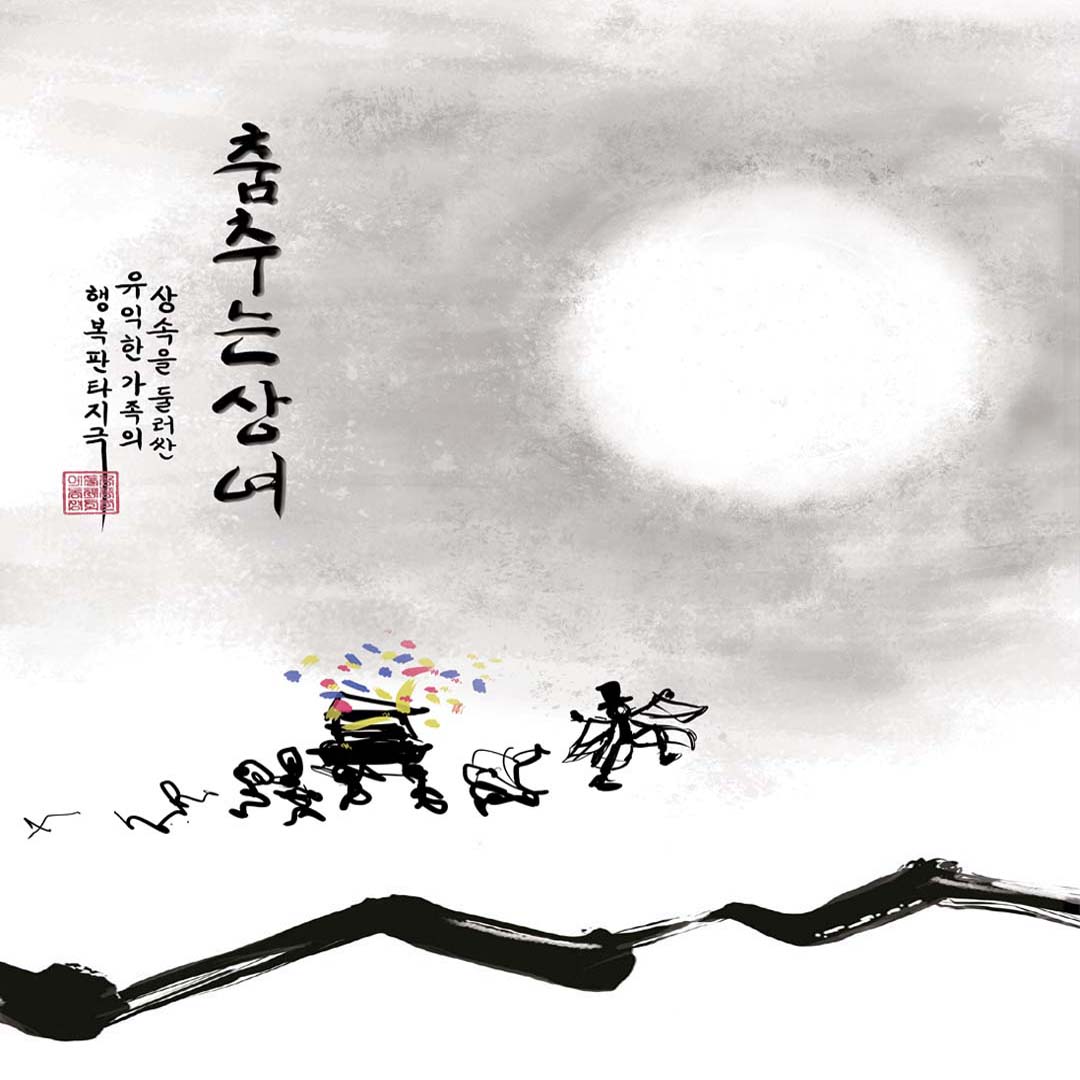 춤추는상여
상속을 둘러싼
유익한가족의
행복판타지극